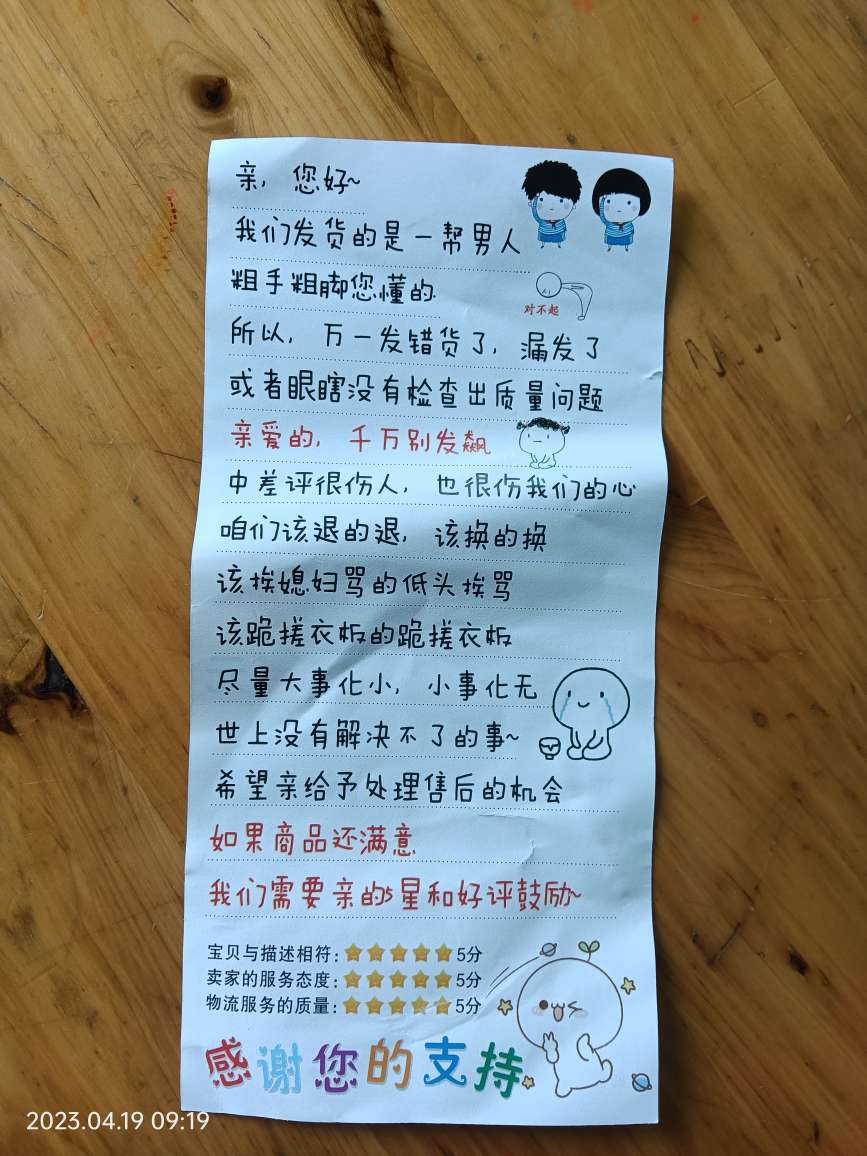 亲，您好~
我们发货的是一帮男人
粗手粗脚您懂的
对不起
所以，万一发错货了，漏发了
或者眼瞎没有检查出质量问题
亲爱的，千万别发飙
中差评很伤人，也很伤我们的心
咱们该退的退，该换的换
该挨媳妇骂的低头挨骂
该跪搓衣板的跪搓衣板
尽量大事化小，小事化无
世上没有解决不了的事~
希望亲给予处理售后的机会
如果商品还满意
我们需要亲的5星和好评鼓励~
宝贝与描述相符：★★★★★5分
卖家的服务态度：★★★★★5分
物流服务的质量：★★★★★5分
感谢您的支持
2023.04.19 09:19